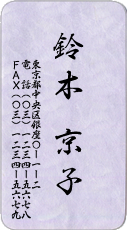 鈴木京子
東京都中央区銀座〇ー一ー二
電話（〇三）一二三四ー五六七八
ＦＡＸ（〇三）一二三四ー五六七九